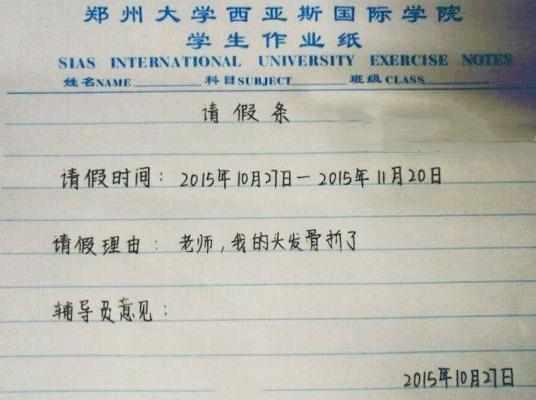 郑州大学西亚斯国际学院
学生作业纸
SIAS INTERNATIONAL UNIVERSITY EXERCISE NOTES
姓名NAME 科目SUBJECT 班级CLASS
请假条
请假时间：2015年10月27日—2015年11月20日
请假理由：老师，我的头发骨折了
辅导员意见：
2015年10月27日